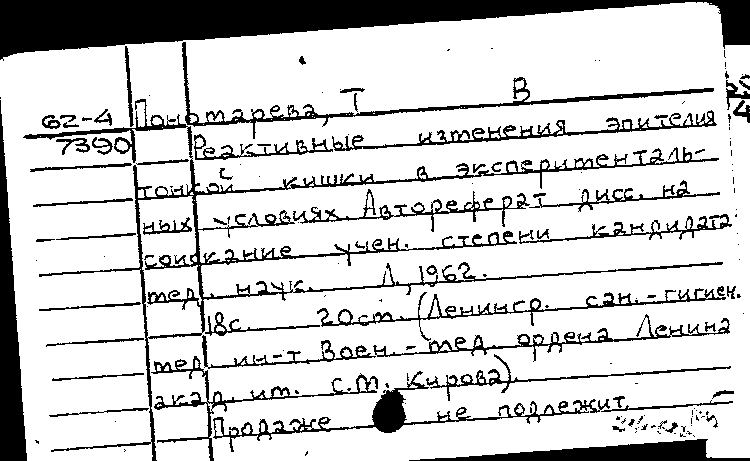 62-4 Пономарева, Т В
7390 Реактивные изменения эпителия
тонкой кишки в эксперименталь-
ных условиях. Автореферат дисс. на
соискание учен. степени кандидата
мед. наук. Л., 1962.
18с. 20см. (Ленингр. сан.-гигиен.
мед. ин-т. Воен.-мед. ордена Ленина
акад. им. С.М. Кирова).
Продаже не подлежит.